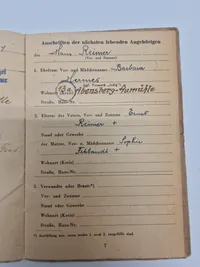 Anschriften der nächsten lebenden Angehörigen
des Hans Reimer
(Vor- und Zuname)
1. Ehefrau: Vor- und Mädchenname: Barbara
Hermes
Wohnort (Kreis) Abensberg-Aumühle
Straße, Haus-Nr.
2. Eltern: des Vaters, Vor- und Zuname Ernst
Reimer +
Stand oder Gewerbe
der Mutter, Vor- u. Mädchenname Sophie
Wohnort (Kreis) +
Straße, Haus-Nr.
3. Verwandte oder Braut:*)
Vor- und Zuname
Stand oder Gewerbe
Wohnort (Kreis)
Straße, Haus-Nr.
*) Ausfüllung nur, wenn weder 1. noch 2. ausgefüllt sind.
7